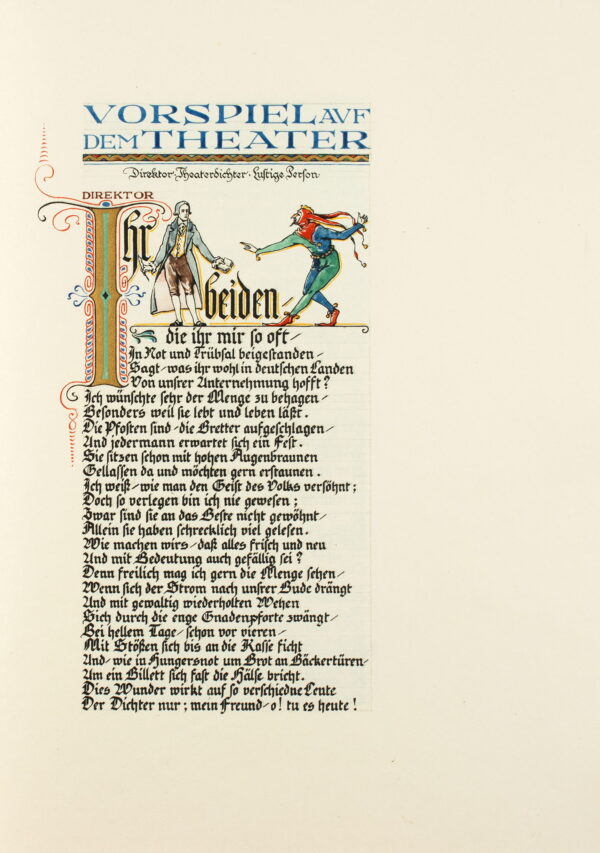 VORSPIEL AVF
DEM THEATER
Direktor · Theaterdichter · Lustige Person
DIREKTOR
Ihr
beiden /
die ihr mir so oft /
In Not und Trübsal beigestanden /
Sagt / was ihr wohl in deutschen Landen
Von unsrer Unternehmung hofft?
Ich wünschte sehr der Menge zu behagen /
Besonders weil sie lebt und leben läßt.
Die Pfosten sind / die Bretter aufgeschlagen /
Und jedermann erwartet sich ein Fest.
Sie sitzen schon mit hohen Augenbraunen
Gellassen da und möchten gern erstaunen.
Ich weiß / wie man den Geist des Volks versöhnt;
Doch so verlegen bin ich nie gewesen;
Zwar sind sie an das Beste nicht gewöhnt /
Allein sie haben schrecklich viel gelesen.
Wie machen wirs / daß alles frisch und neu
Und mit Bedeutung auch gefällig sei?
Denn freilich mag ich gern die Menge sehen /
Wenn sich der Strom nach unsrer Bude drängt
Und mit gewaltig wiederholten Wehen
Sich durch die enge Gnadenpforte zwängt /
Bei hellem Tage / schon vor vieren /
Mit Stößen sich bis an die Kasse ficht
Und / wie in Hungersnot um Brot an Bäckertüren /
Um ein Billett sich fast die Hälse bricht.
Dies Wunder wirkt auf so verschiedne Leute
Der Dichter nur; mein Freund / o! tu es heute!